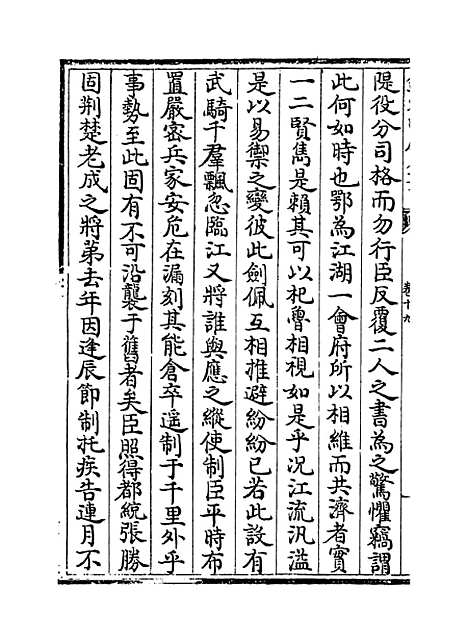 隄役分司格而勿行臣反覆二人之書為之驚懼竊謂
此何如時也鄂為江湖一會府所以相維而共濟者實
一二賢雋是賴其可以杞魯相視如是乎况江流汎溢
是以易禦之變彼此劍佩互相推避紛紛已若此設有
武騎千羣飄忽臨江又將誰與應之縱使制臣平時布
置嚴密兵家安危在漏刻其能倉卒遥制于千里外乎
事勢至此固有不可沿襲于舊者矣臣照得都統張勝
固荆楚老成之將第去年因逢辰節制托疾告連月不
卷十九